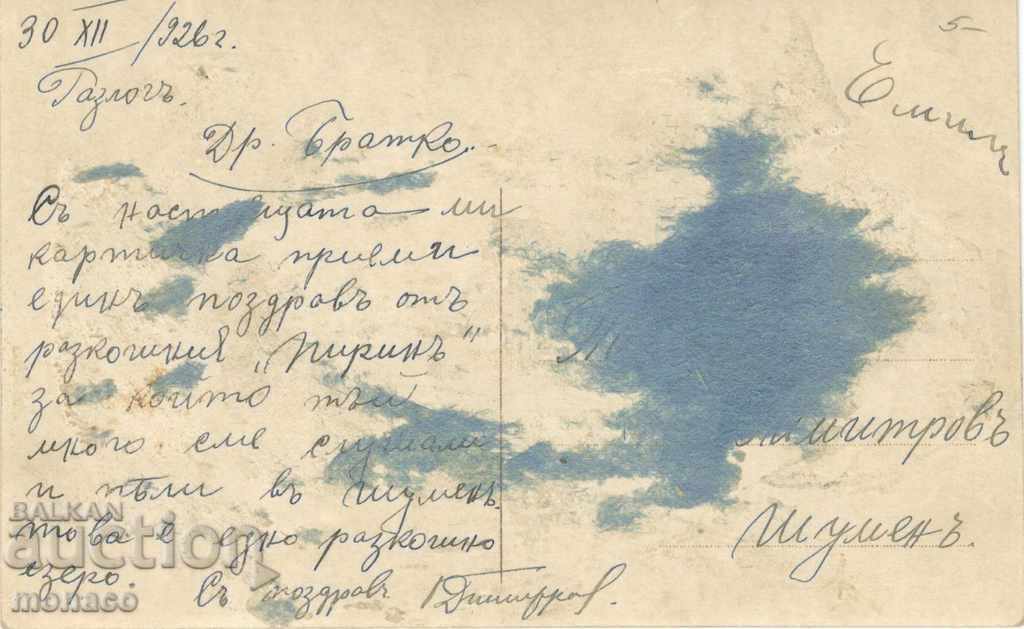 30 XII /926 г.
5-
Разлогъ.
Емилъ
Др. Братко.
Съ настоящата ми
картичка приеми
единъ поздравъ отъ
разкошния "Пиринъ"
за който тъй
много сме слушали
и пѣли въ Шуменъ.
това е едно разкошно
езеро.
Съ поздравъ Димитров.
Димитровъ
Шуменъ.
BALKAN
auction
monaco